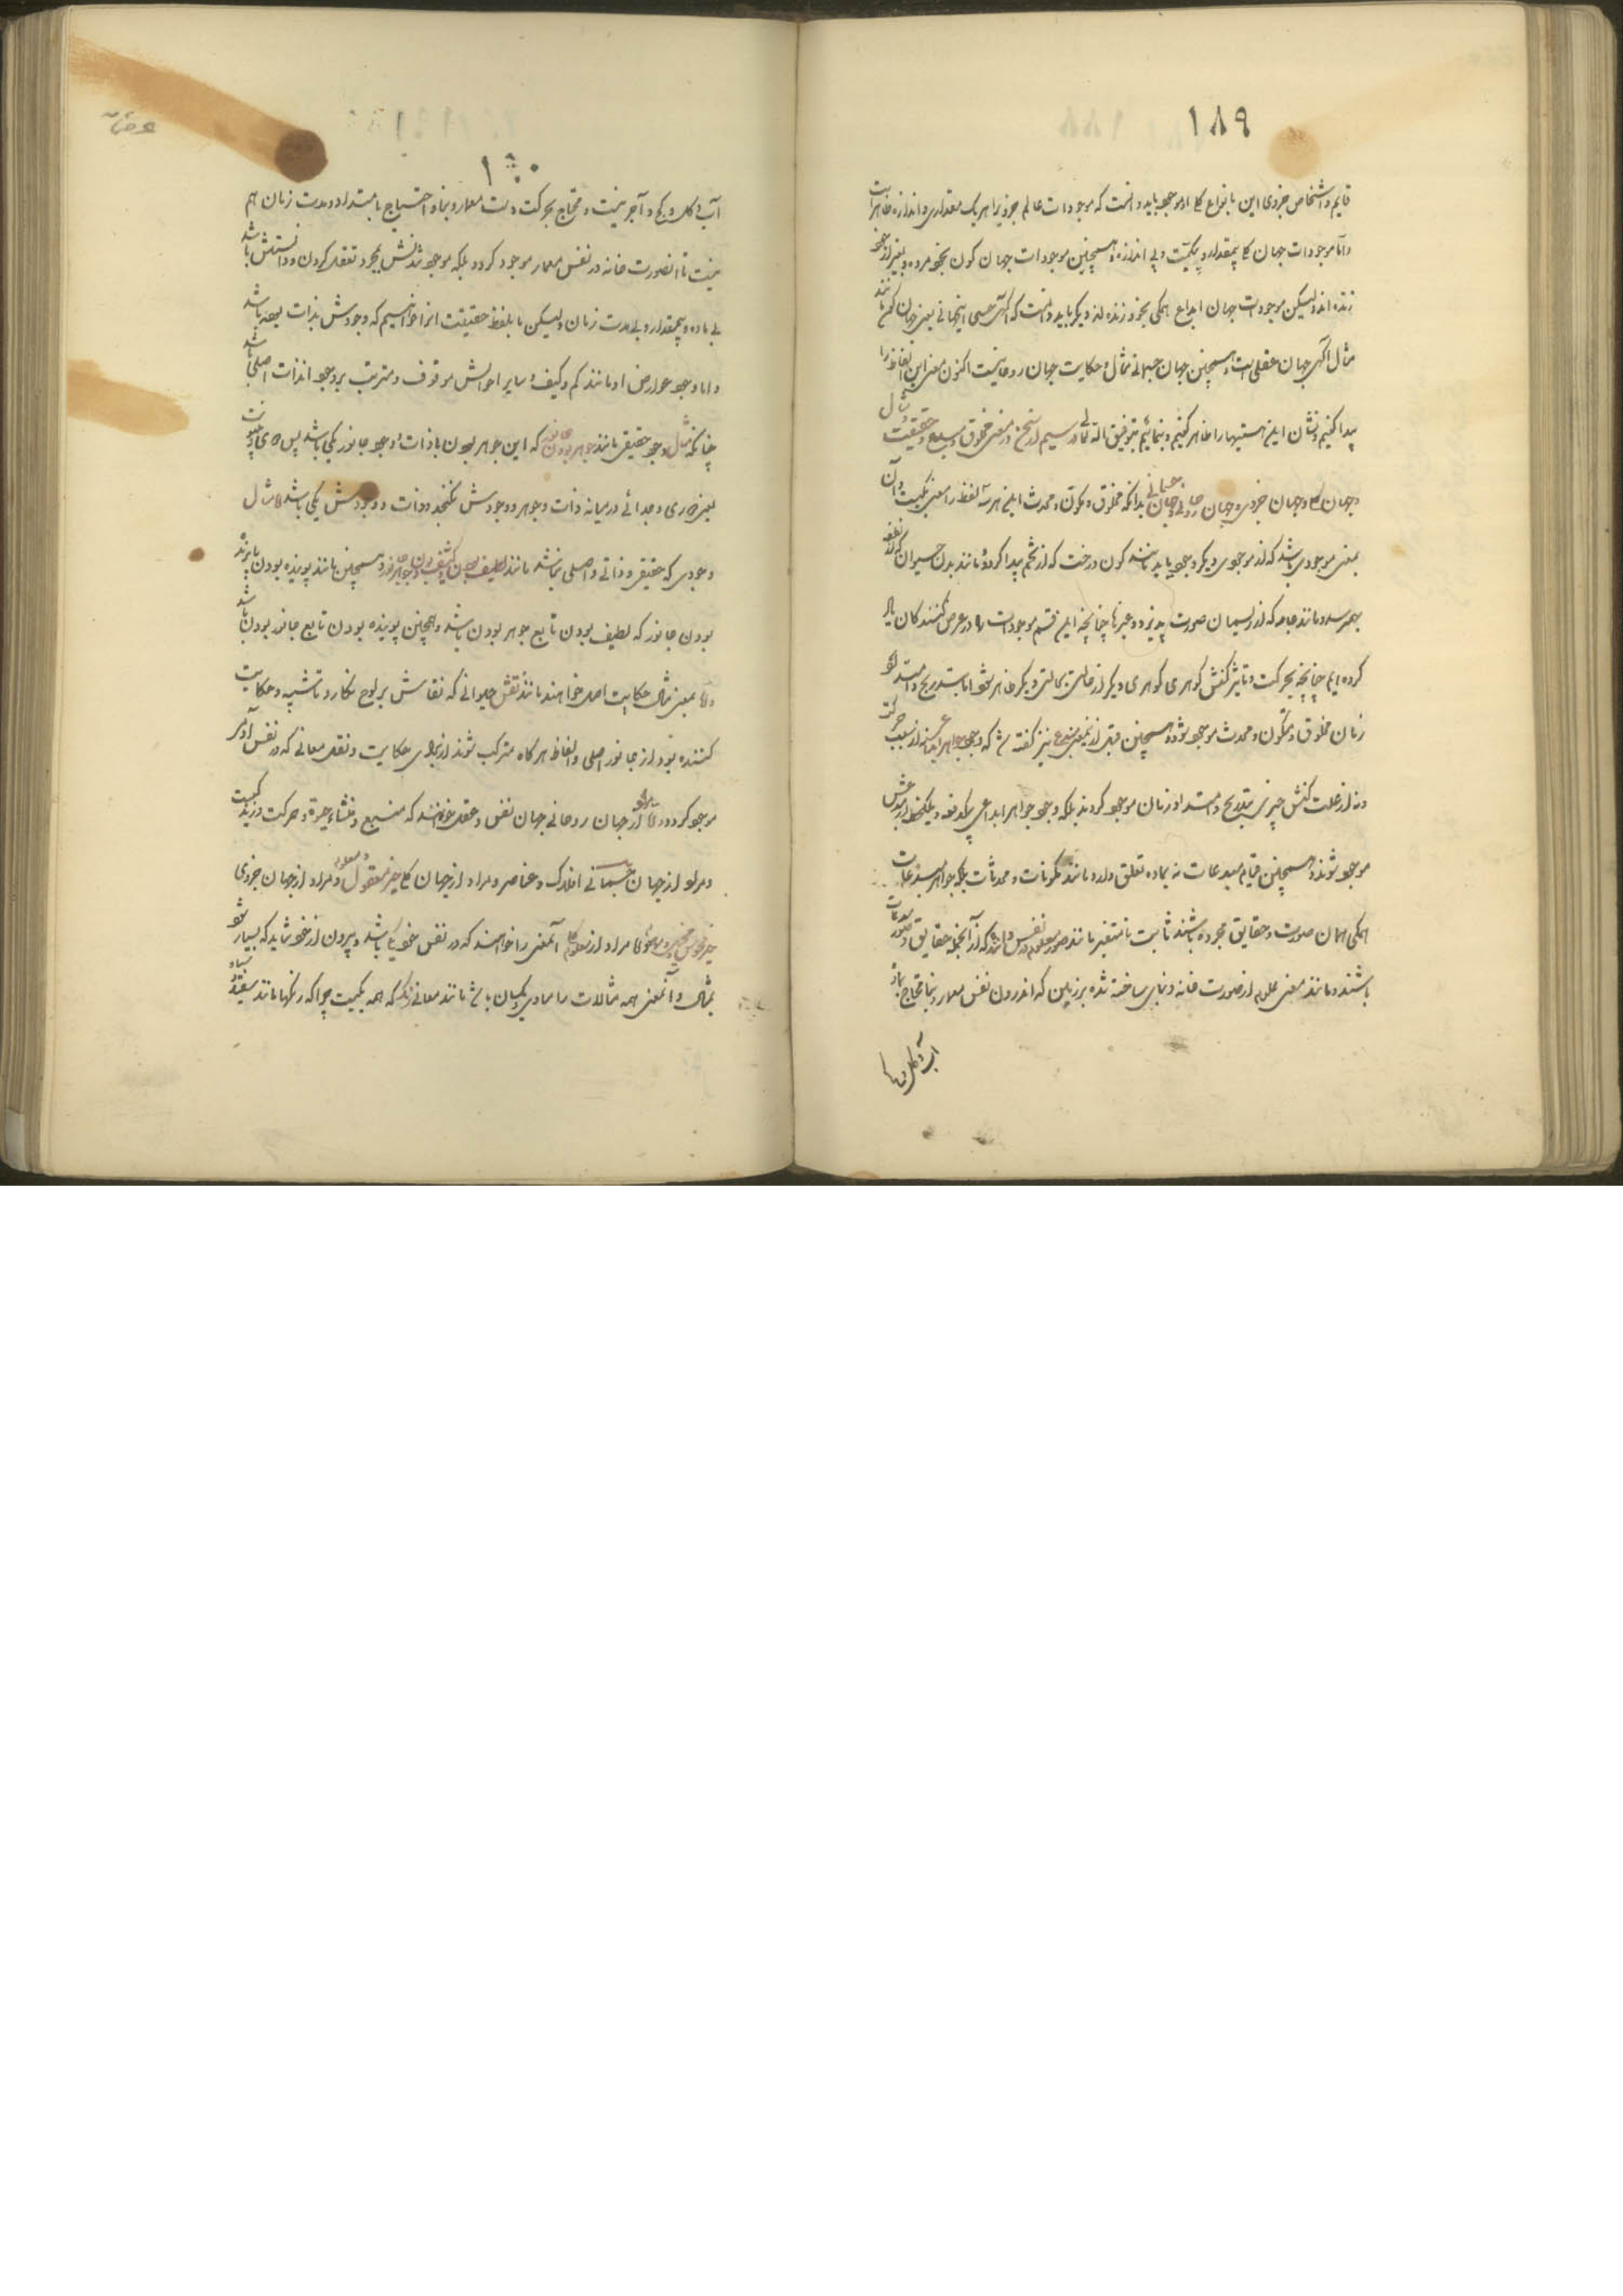 ۱۸۹
قایم و اشخاص جزوی این با نواع کلی او موجود باید دانست که موجودات عالم جزویرا هر یک مقداری و اندازه ظاهر است
و اما موجودات جهان کلی بیمقدار و بیکمیت و بی اندازه و همچنین موجودات جهان کون بخود مرده و بغیر از خود
زنده اند ولیکن موجودات جهان ابداع همگی بخود زنده اند و دیگر باید دانست که آگهی حسی اینجهانی یعنی جهان کون مانند
مثال آگهی جهان عقلی است و همچنین جهان جسمانی مثال و حکایت جهان روحانیست اکنون معنی این الفاظ را
پیدا کنیم و نشان این هستیها را ظاهر کنیم و بنمائیم بتوفیق الله تعالی در سیم از سخن در معنی مخلوق و مبدع و حقیقت و مثال
و جهان کلی و جهان جزوی و جهان روحانی و جهان جسمانی بدانکه مخلوق و مکون و محدث این هر سه لفظ را معنی یکیست و آن
بمعنی موجودی باشد که از موجودی دیگر وجود یابد مانند کون درخت که از تخم پیدا گردد و مانند بدن حیوان که از نطفه
بهم رسد و مانند جامه که از ریسمان صورت پذیرد و غیرها چنانچه این قسم موجودات را در عرض کنندگان یاد
کرده ایم چنانچه بحرکت و تاثیر کنش گوهری گوهری دیگر از حالتی بحالتی دیگر ظاهر شود اما بتدریج و امتداد
زمان مخلوق و مکون و محدث موجود شود و همچنین قبل از این معنی مبدع نیز گفته شد که وجود جواهر ابداعی نه از سبب حرکت
و نه از علت کنش چیزی بتدریج و امتداد زمان موجود گردند بلکه وجود جواهر ابداعی بیکدفعه و بیکلحظه از مبدعش
موجود شوند و همچنین قیام مبدعات نه بماده تعلق دارد مانند مکونات و محدثات بلکه جواهر مبدعات
همگی همان صورت و حقایق مجرده باشند ثابت نامتغیر مانند صور معلوم در نفس داننده که از آنجمله حقایق و صور مبدعات
باشند و مانند معنی معلوم از صورت خانه و بنای ساخته شده بر زمین که اندرون نفس معمار و بنا محتاج بماده
آب و گل و
۱۹۰
آب و گل و کچ و آجر نیست و محتاج بحرکت دست معمار و بنا و احتیاج بامتداد و مدت زمان هم
نیست تا آنصورت خانه در نفس معمار موجود گردد بلکه موجود شدنش بمجرد تعقل کردن و دانستنش باشد
بی ماده و بیمقدار و بی مدت زمان ولیکن ما بلفظ حقیقت آنرا خواهیم که وجودش بذات بوده باشد
و اما وجود عوارض او مانند کم و کیف و سایر احوالش موقوف و مترتب بر وجود آنذات اصلی باشد
چنانکه مثال وجود حقیقی مانند جوهر بودن جانور که این جوهر بودن با ذات وجود جانور یکی باشد پس
یعنی و جدائی در میانه ذات و جوهر و وجودش نگنجد و ذات و وجودش یکی باشد و اما مثال
وجودی که حقیقی و ذاتی و اصلی نباشد مانند لطیف بودن و کثیف بودن جوهر و همچنین مانند پوینده بودن یا پرنده
بودن جانور که لطیف بودن تابع جوهر بودن باشد و همچنین پوینده بودن تابع جانور بودن باشد
و اما بمعنی مثال حکایت اصل خواهند مانند نقش حیوانی که نقاش بر لوح نگارد و تشبیه و حکایت
کننده بود از جانور اصلی و الفاظ هر گاه مترکب شوند از برای حکایت و نقل معانی که در نفس آدمی
موجود گردد و اما مراد از جهان روحانی جهان نفس و عقل خواهند که منبع و منشاء حیوة و حرکت و زندگیست
و مراد از جهان جسمانی افلاک و عناصر و مراد از جهان کلی چیز معقول و معلوم و مراد از جهان جزوی
چیز محسوس و اما مراد از معلوم کلی آنمعنی را خواهند که در نفس خود یکی باشد و بیرون از خود شاید که بسیار شود
بمثال و آنمعنی همه مثالات را مساوی و یکسان باشد مانند معانی رنگ که همه یکیست چرا که رنگها مانند سفید و سیاه